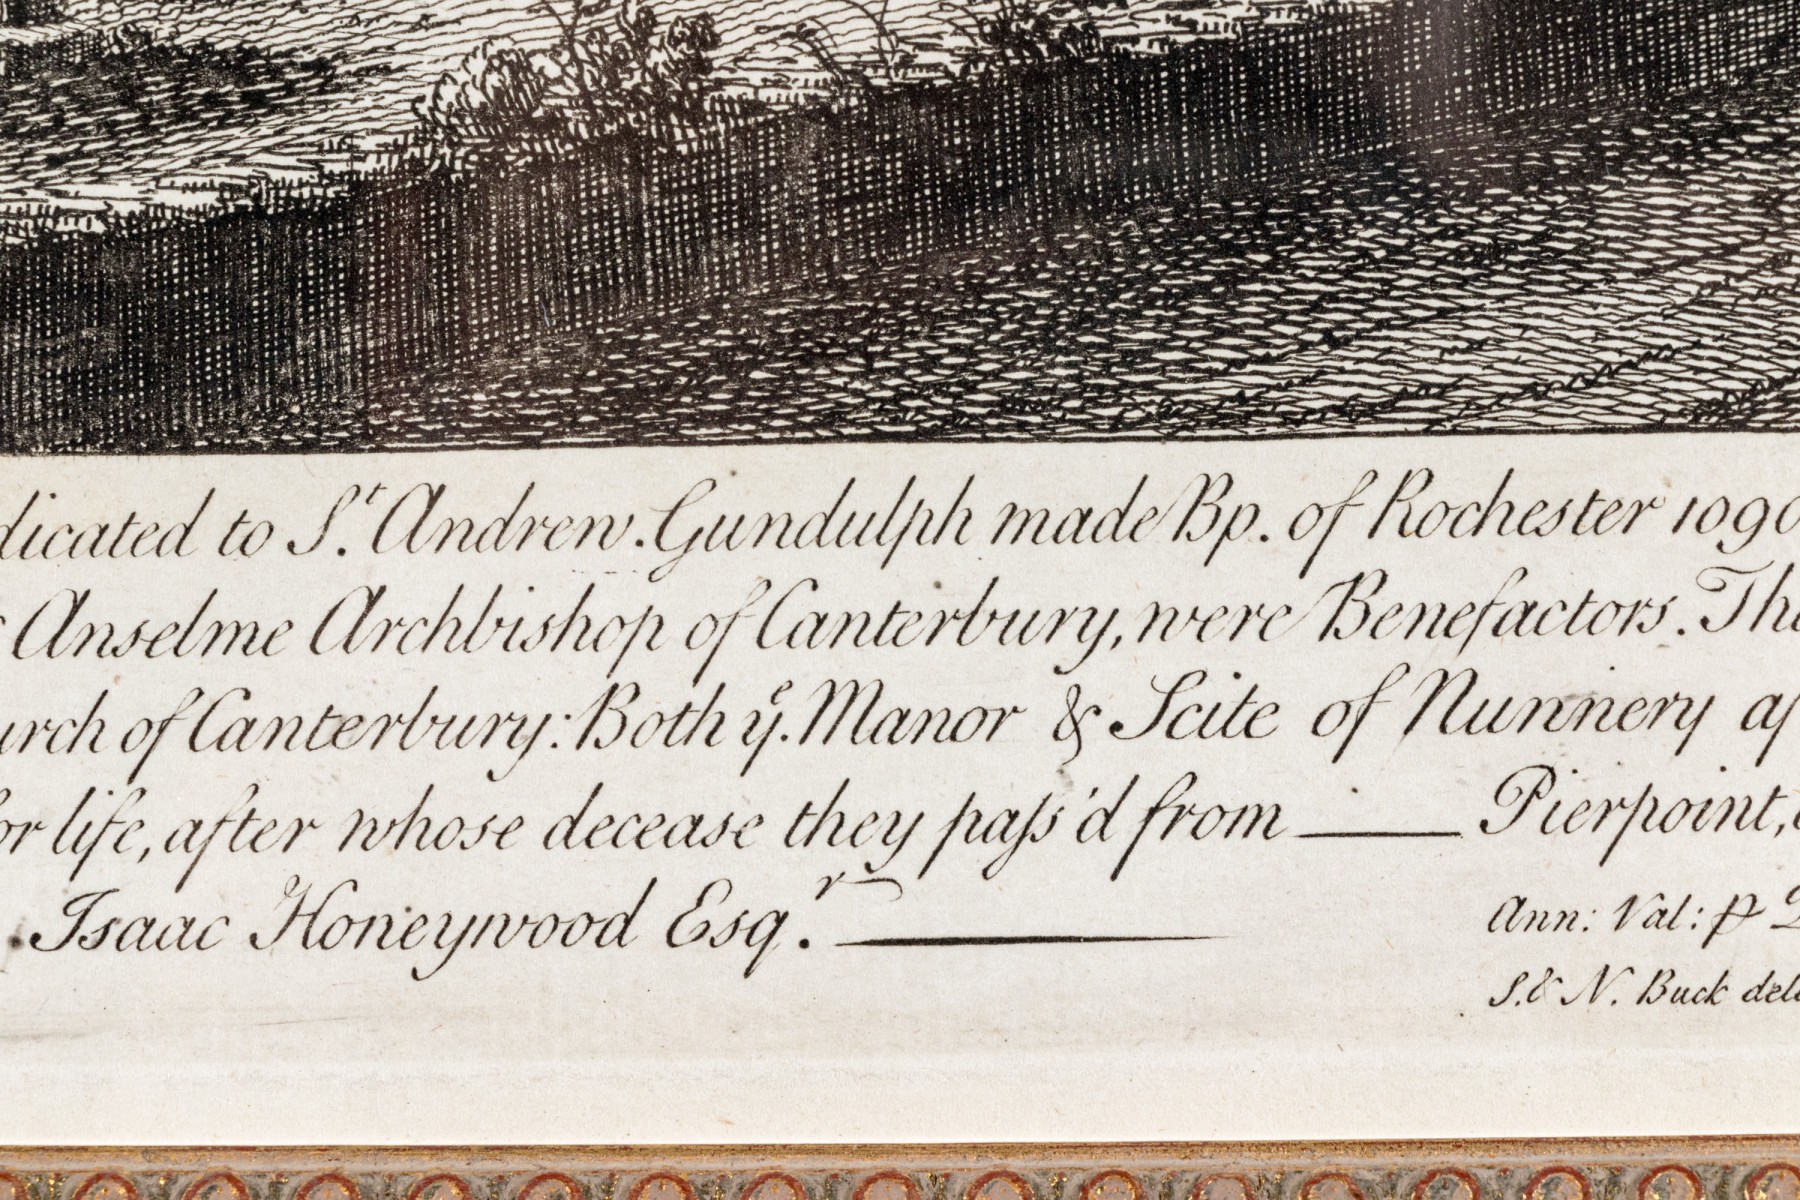 dicated to S.t Andrew. Gundulph made Bp. of Rochester 1090
Anselme Archbishop of Canterbury, were Benefactors. The
urch of Canterbury: Both ye. Manor & Scite of Nunnery af
or life, after whose decease they paſs'd from — Pierpoint,
Isaac Honeywood Esq.r —
Ann: Val: ꝑ
S. & N. Buck del